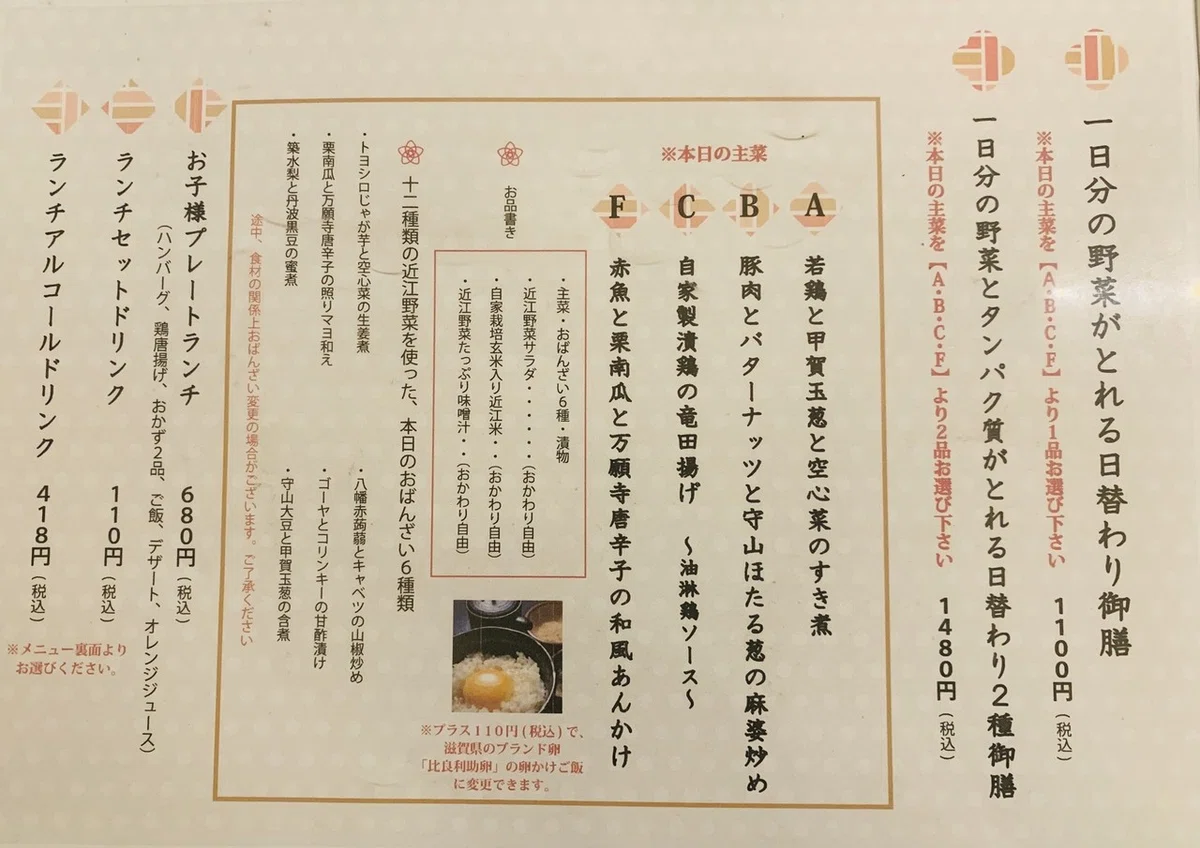 一日分の野菜がとれる日替わり御膳
※本日の主菜を【A・B・C・F】より1品お選び下さい
1100円(税込)
一日分の野菜とタンパク質がとれる日替わり2種御膳
※本日の主菜を【A・B・C・F】より2品お選び下さい
1480円(税込)
※本日の主菜
A 若鶏と甲賀玉葱と空心菜のすき煮
B 豚肉とバターナッツと守山ほたる葱の麻婆炒め
C 自家製漬鶏の竜田揚げ ~油淋鶏ソース~
F 赤魚と栗南瓜と万願寺唐辛子の和風あんかけ
お品書き
・主菜・おばんざい6種・漬物
・近江野菜サラダ・・・・・(おかわり自由)
・自家栽培玄米入り近江米・・(おかわり自由)
・近江野菜たっぷり味噌汁・・(おかわり自由)
※プラス110円(税込)で、
滋賀県のブランド卵
「比良利助卵」の卵かけご飯
に変更できます。
十二種類の近江野菜を使った、本日のおばんざい6種類
・トヨシロじゃが芋と空心菜の生姜煮
・八幡赤蒟蒻とキャベツの山椒炒め
・栗南瓜と万願寺唐辛子の照りマヨ和え
・ゴーヤとコリンキーの甘酢漬け
・築水梨と丹波黒豆の蜜煮
・守山大豆と甲賀玉葱の含煮
途中、食材の関係上おばんざい変更の場合がございます。ご了承ください
お子様プレートランチ 680円(税込)
(ハンバーグ、鶏唐揚げ、おかず2品、ご飯、デザート、オレンジジュース)
ランチセットドリンク 110円(税込)
ランチアルコールドリンク 418円(税込)
※メニュー裏面より
お選びください。